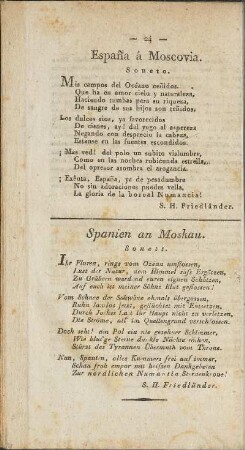 — 24 —
España á Moscovia.
Soneto.
Mis campos del Océano ceñidos,
Que ha en amor cielo y naturaleza,
Haciendo tumbas para su riqueza,
De sangre de sus hijos son teñidos.
Los dulces rios, ya favorecidos
De cienes, ay! del yugo al aspereza
Negando con desprecio la cabeza,
Estanse en las fuentes escondidos.
¡Mas ved! del polo un subito vislumbre,
Como en las noches rubicunda estrella,
Del opresor asombra el arogancia.
¡Exênta, España, ya de pesadumbre
No sin adoraciones puedes vella,
La gloria de la boreal Numancia!
S. H. Friedländer.
Spanien an Moskau.
Sonett.
Ihr Fluren, rings vom Ozean umflossen,
Lust der Natur, dem Himmel süss Ergötzen,
Zu Gräbern werdend euren eignen Schätzen,
Auf euch ist meiner Söhne Blut geflossen!
Vom Schnee der Schwäne ehmals übergossen,
Ruhn lautlos jetzt, gefesselt mit Entsetzen,
Durch Joches Last ihr Haupt nicht zu verletzen,
Die Ströme, all' im Quellengrund verschlossen.
Doch seht! am Pol ein nie gesehner Schimmer,
Wie blut'ge Sterne durch die Nächte ziehen,
Stürzt der Tyrannen Übermuth vom Throne.
Nun, Spanien, alles Kummers frei auf immer,
Schau froh empor mit heissen Dankgebeten
Zur nördlichen Numantia Sternenkrone!
S. H. Friedländer.